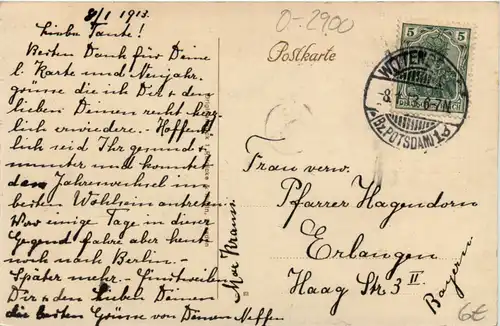 8/1 1913.
Liebe Tante!
Besten Dank für Deine
l. Karte und Neujahr-
grüsse die ich Dir + den
lieben Deinen recht herz-
lich erwiedere. - Hoffent-
lich seid Ihr gesund +
munter und konntet
den Jahreswechsel im
besten Wohlsein antreten.
War einige Tage in dieser
Gegend fahre aber heut
noch nach Berlin. -
Später mehr. - Einstweilen
Dir + den lieben Deinen
die besten Grüsse von Deinem Neffen
Max
0-2900
Postkarte
5 5
8. 13. 6-7N.
(BZ. POTSDAM) 1
Frau verw.
Pfarrer Hagendorn
Erlangen
Haag Str. 3 II
Bayern
6€